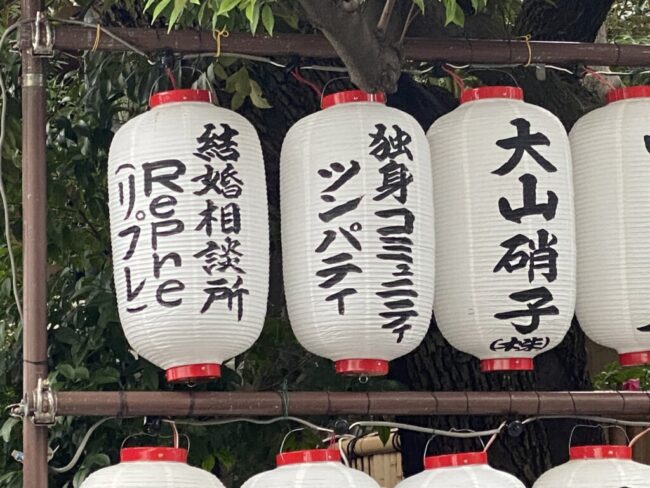 大山硝子
独身コミュニティ
ツンパティ
結婚相談所
Repre
(リプレ)